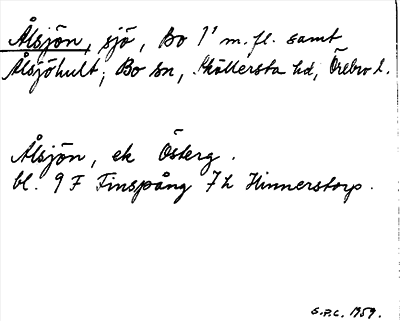 Ålsjön, sjö, Bo 1¹ m.fl. samt
Ålsjöhult, Bo sn, Sköllersta hd, Örebro l.
Ålsjön, ek Österg.
bl. 9 F Finspång 7 h Hinnerstorp.
G.P.C. 1959.